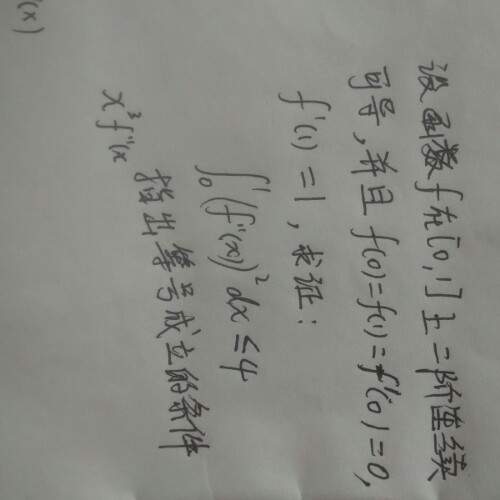 设函数f在[0,1]上二阶连续
可导,并且f(0)=f(1)=f'(0)=0,
f'(1)=1,求证:
∫₀¹(f''(x))²dx≤4
指出等号成立的条件
x³f''(x
'(x)